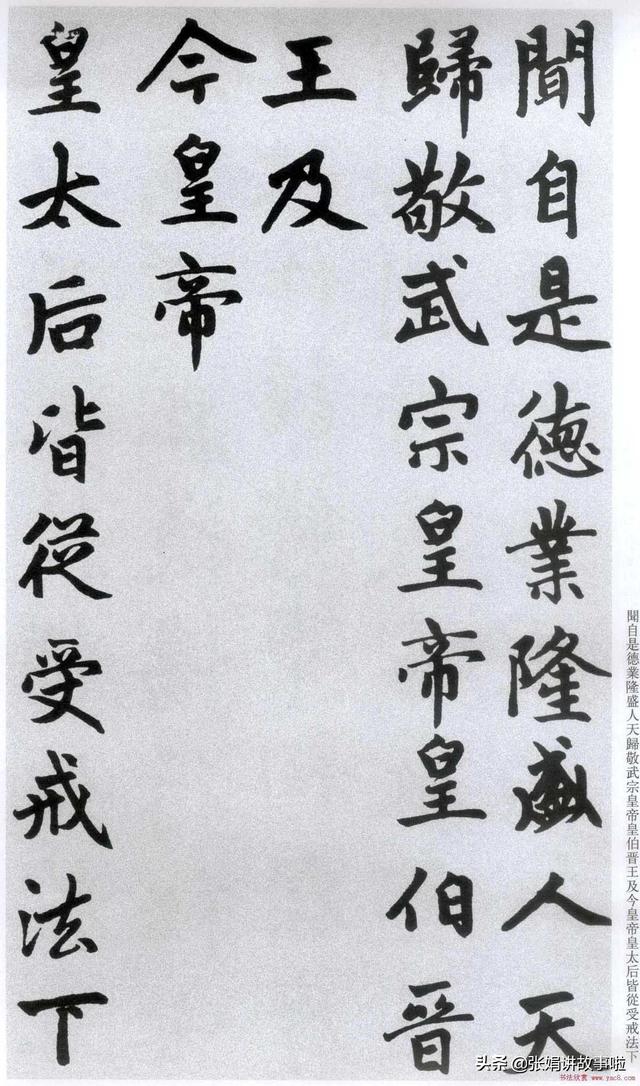 聞自是德業隆盛人天
歸敬武宗皇帝皇伯晉
王及
今皇帝
皇太后皆從受戒法下
聞自是德業隆盛人天歸敬武宗皇帝皇伯晋王及今皇帝皇太后皆從受戒法下
头条 @张娟讲故事啦
书法欣赏 www.yac8.com